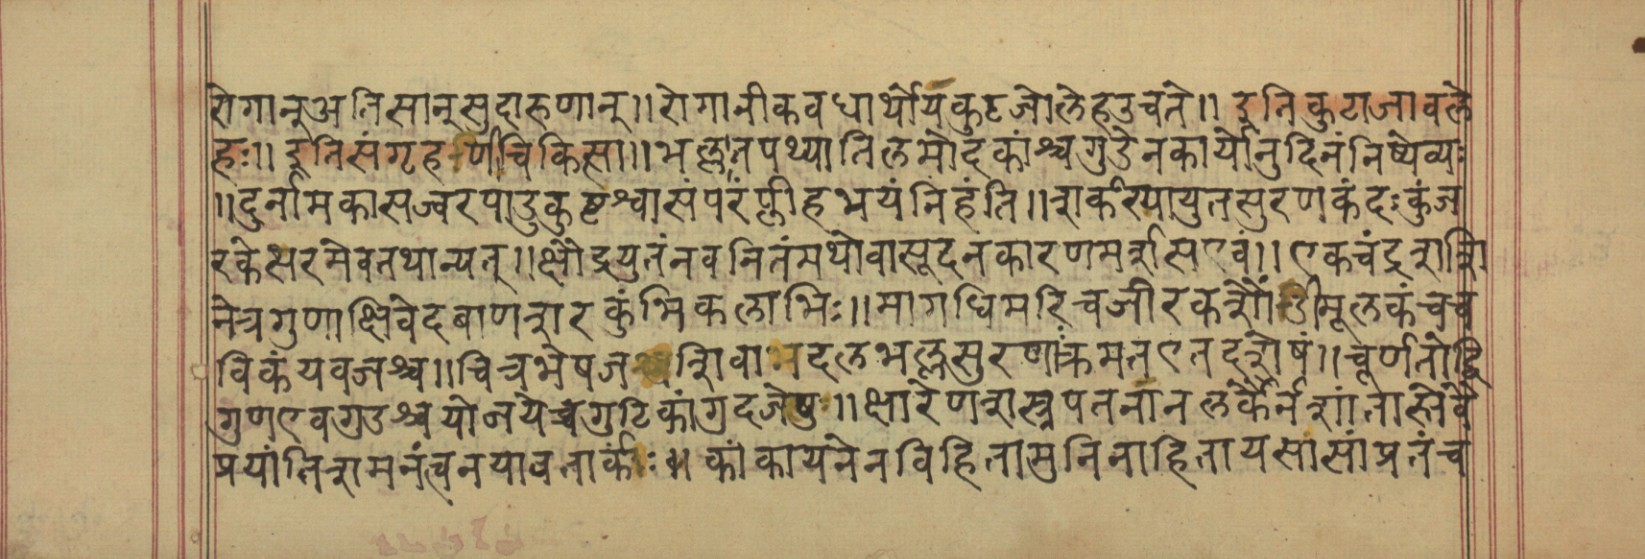 रोगानुअतिसानुसुदारुणान्॥रोगानीकवधार्थोयंकुटजोलेहउच्यते॥ इतिकुटाजावले
हः॥ इतिसंगृहणीचिकित्सा॥भल्लातपथ्यातिलमोदकांश्चगुडेनकार्योनुदिनंनिष्येव्यः
॥दुर्नामकासज्वरपाडुकुष्टश्वासंपरंप्लीहभयंनिहंति॥शर्करयायुतसुरणकंदःकुंज
रकेसरमेवतथान्यत्॥क्षौद्रयुतंनवनितंमथोवासूदनकारणमर्शसएवं॥एकचंद्रशशि
नेत्रगुणाक्षिवेदबाणशरकुंभिकलाभिः॥मागधिमरिचजीरकशौंठीमूलकंचच
विकंयवजश्च॥चित्रभेषज शिवा दलभल्लसुरणांक्रमतएतदशेषं॥चूर्णतोद्वि
गुणएवगुडश्चयोजयेच्चगुटिकांगुदजेषु॥क्षारेणशस्त्रपतनानलकैर्नशांतास्तेवे
प्रयांतिशमनंत्वनयावतार्काः॥कांकायनेनविहितामुनिनाहितायसासांप्रतंच